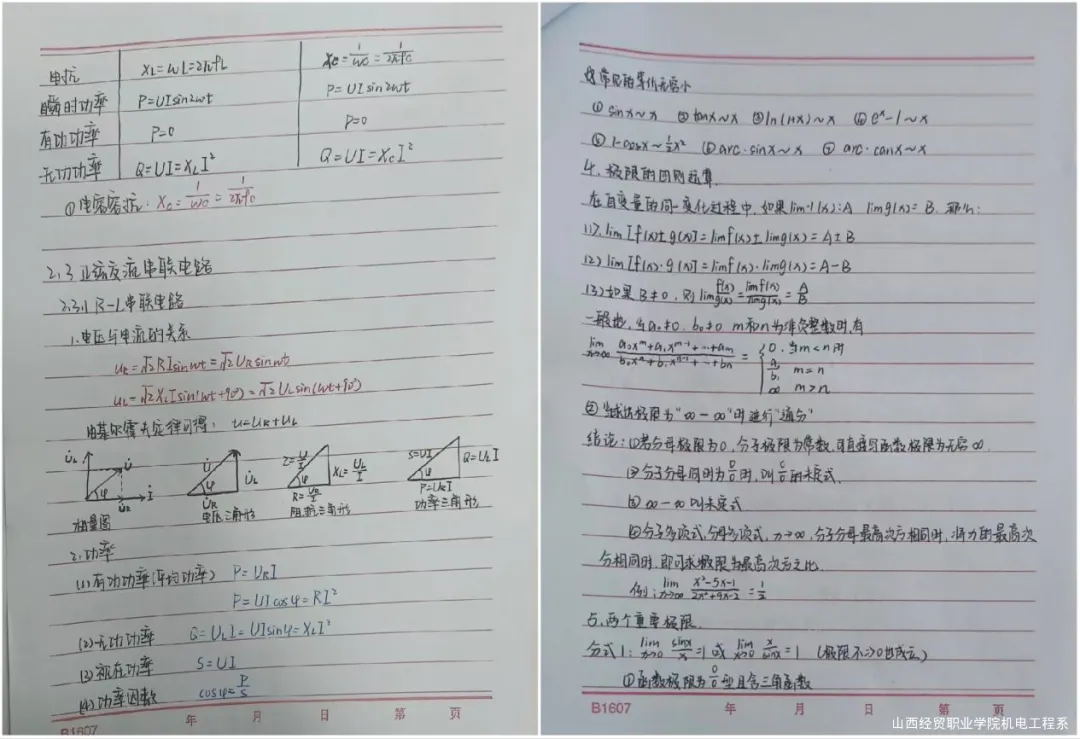 电抗 X_L=ωL=2πfL X_C=1/ωC=1/2πfC
瞬时功率 P=UIsin2ωt P=UIsin2ωt
有功功率 P=0 P=0
无功功率 Q=UI=X_LI² Q=UI=X_CI²
①电容容抗: X_C=1/ωC=1/2πfC
2.3 正弦交流串联电路
2.3.1 R-L串联电路
1.电压与电流的关系
u_R=√2RIsinωt=√2U_Rsinωt
u_L=√2X_LIsin(ωt+90°)=√2U_Lsin(ωt+90°)
由基尔霍夫定律可得: u=u_R+u_L
U̇_L U̇ φ U̇_R İ
U̇ U̇_L φ U̇_R
Z=U/I X_L=U_L/I φ R=U_R/I
S=UI Q=U_LI φ P=U_RI
相量图 电压三角形 阻抗三角形 功率三角形
2.功率
(1)有功功率(平均功率) P=U_RI
P=UIcosφ=RI²
(2)无功功率 Q=U_LI=UIsinφ=X_LI²
(3)视在功率 S=UI
(4)功率因数 cosφ=P/S
B1607 年 月 日 第 页
常见的等价无穷小
①sinx~x ②tanx~x ③ln(1+x)~x ④e^x-1~x
⑤1-cosx~½x² ⑥arc·sinx~x ⑦arc·canx~x
4.极限的四则运算
在自变量的同一变化过程中,如果limf(x)=A limg(x)=B,那么:
(1)lim[f(x)±g(x)]=limf(x)±limg(x)=A±B
(2)lim[f(x)·g(x)]=limf(x)·limg(x)=A-B
(3)如果B≠0,则lim f(x)/g(x)=limf(x)/limg(x)=A/B
一般地,当a₀≠0,b₀≠0 m和n为非负整数时,有
lim x→∞ (a₀x^m+a₁x^(m-1)+…+a_m)/(b₀xⁿ+b₁x^(n-1)+…+b_n)= { 0,当m<n时
a/b, m=n
∞ m>n
当求极限为"∞-∞"时进行"通分"
结论:①若分母极限为0,分子极限为常数,可直接写函数极限为无穷∞.
②分子分母同时为0/0时,叫0/0的未定式.
③∞-∞叫未定式
④分子多项式,分母多项式,x→∞,分子分母最高次方相同时,将x的最高次
方相同时,即可求极限为最高次方之比.
例:lim x→∞ (x²-5x-1)/(2x²+9x-2)=1/2
5.两个重要极限.
公式1: lim x→0 sinx/x=1 或 lim x→0 x/sinx=1 (极限不→0也成立)
①函数极限为0/0型且含三角函数
B1607 年 月 日 第 页
山西经贸职业学院机电工程系